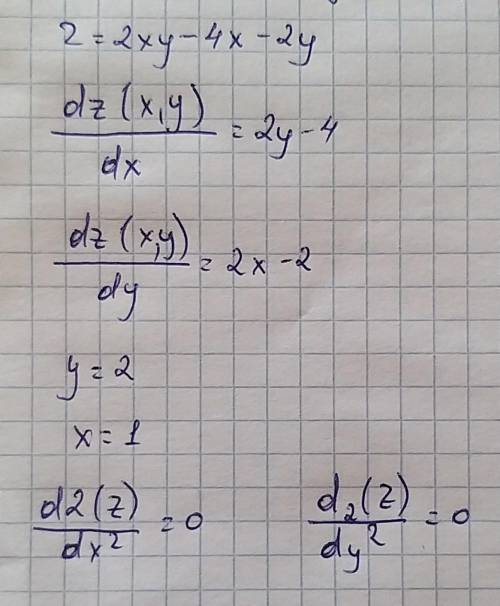 z = 2xy - 4x - 2y
dz(x,y)/dx = 2y - 4
dz(x,y)/dy = 2x - 2
y = 2
x = 1
d2(z)/dx² = 0 d₂(z)/dy² = 0